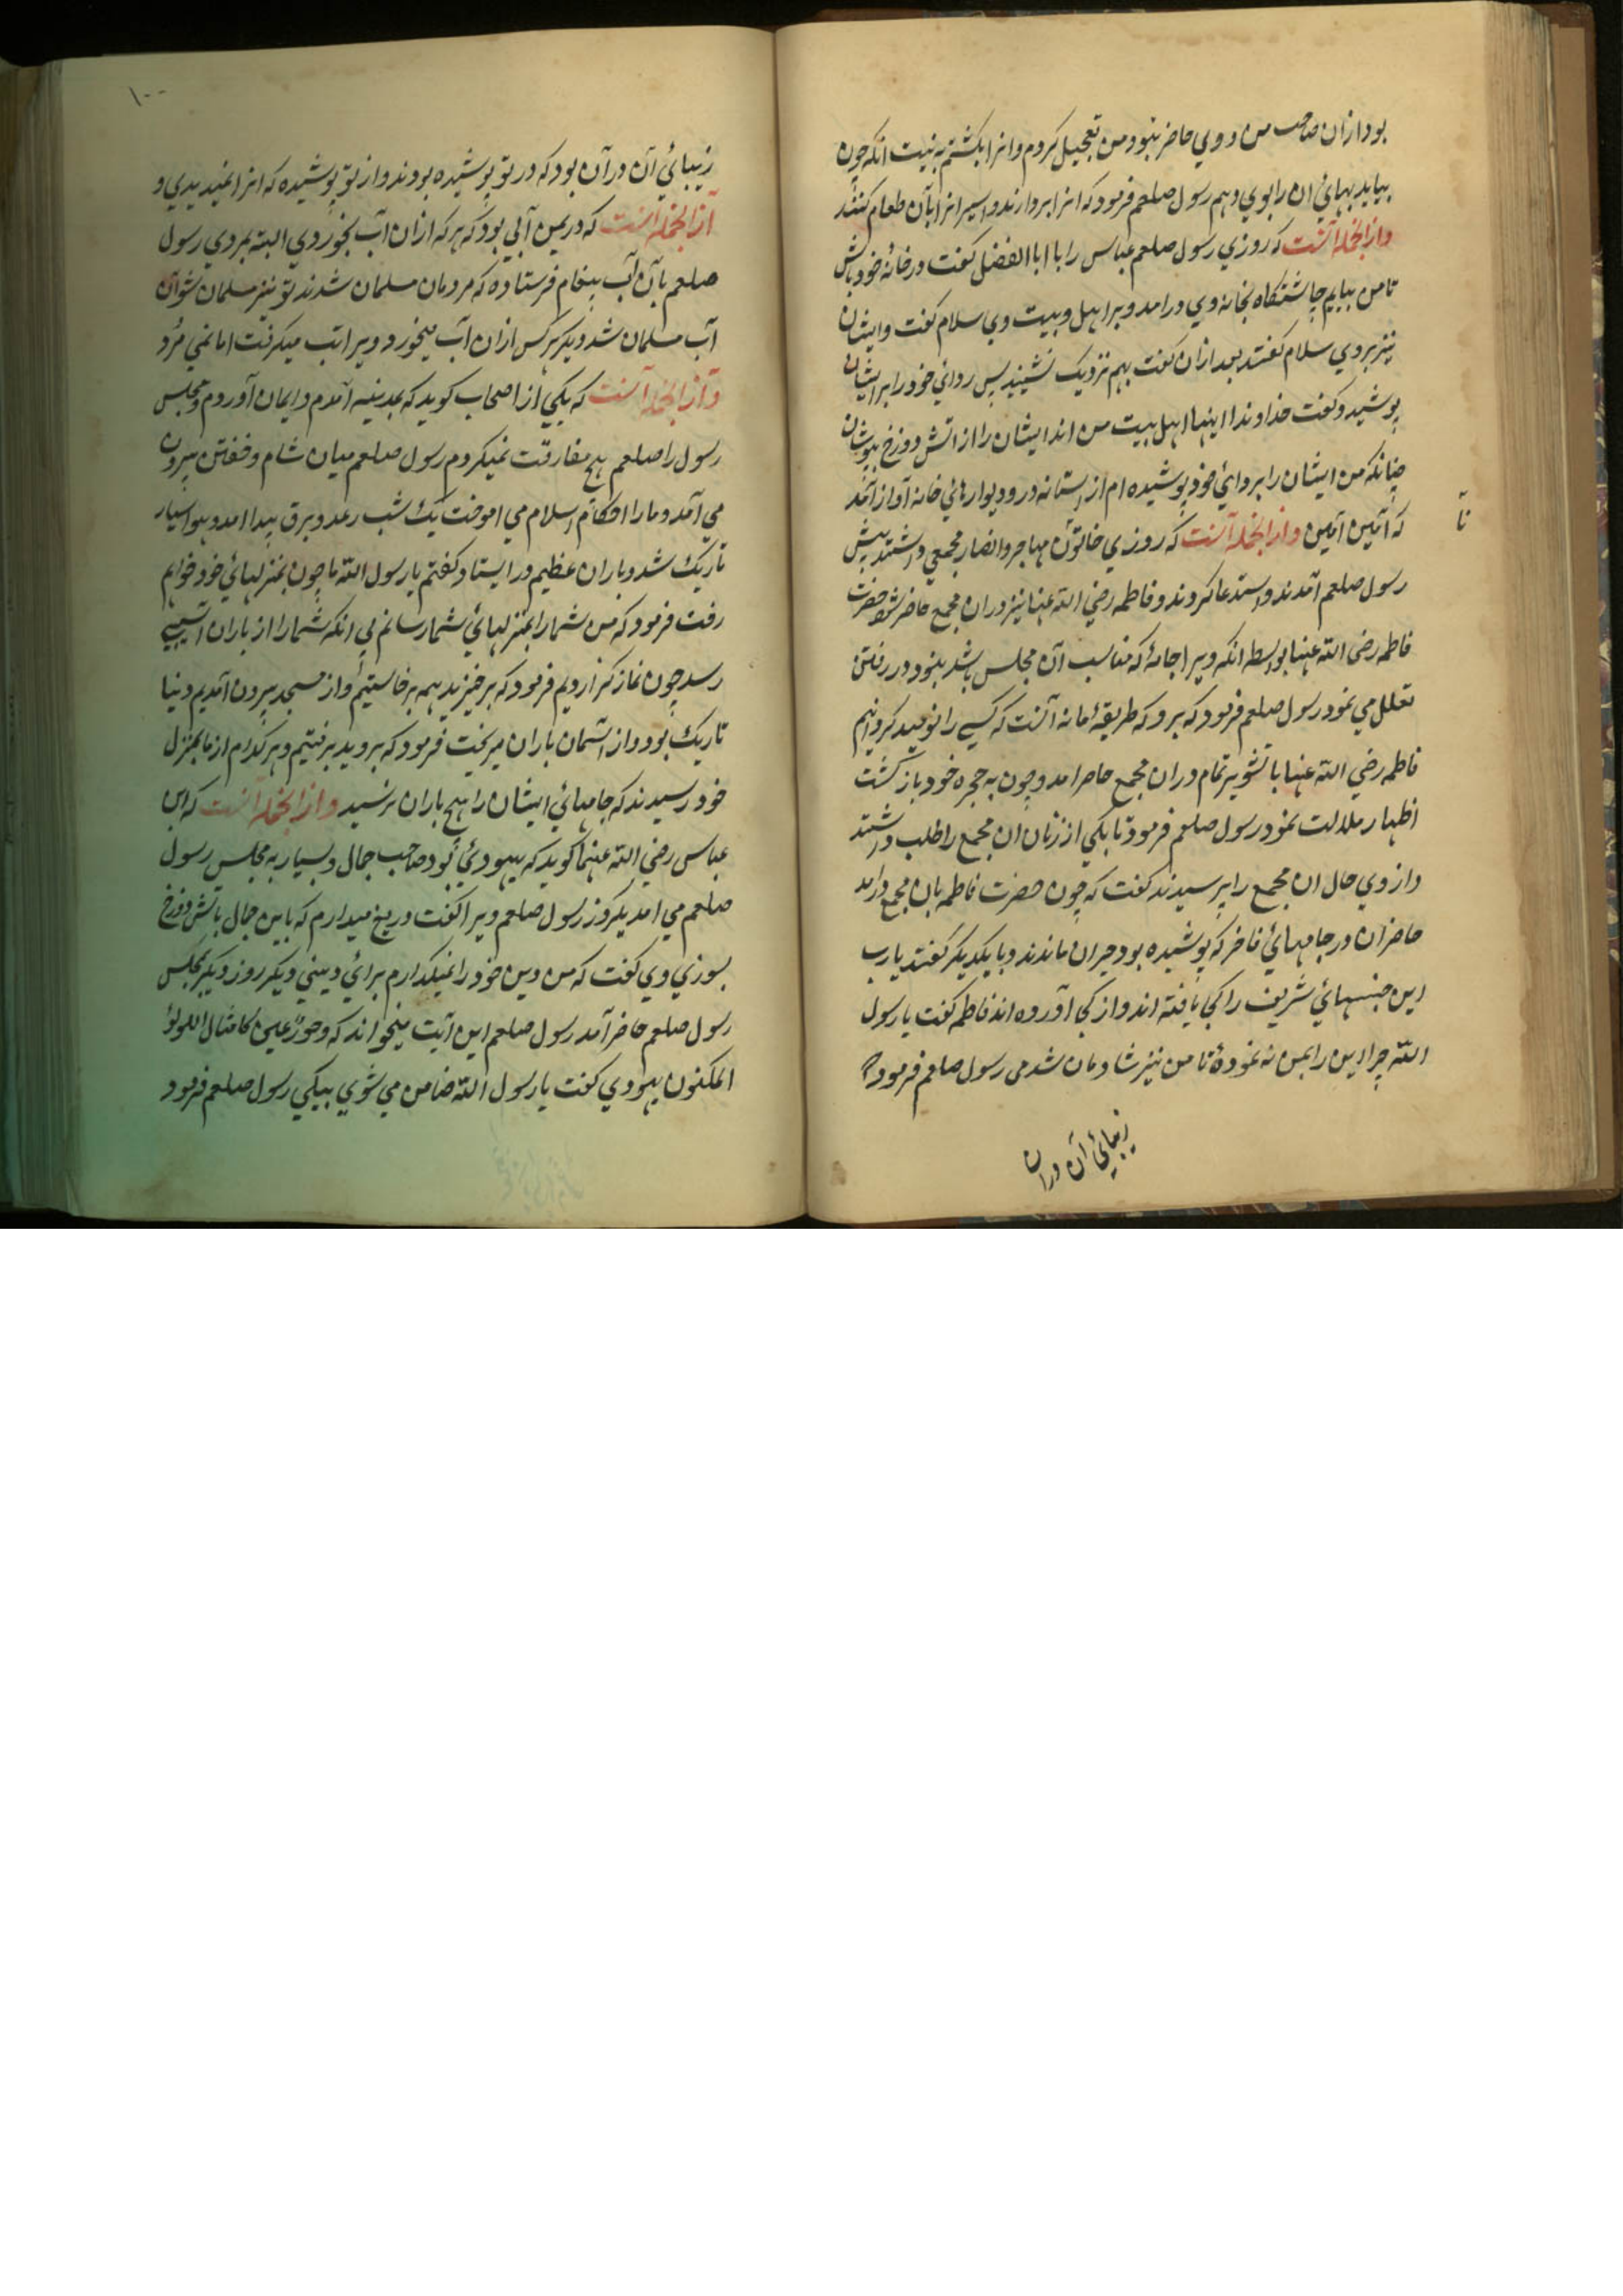 بود ازان صاحب من و وي حاضر نبود من تعجيل كردم وانرا بكشتم به نيت انكه چون
بيايد بهاي ان را بوي دهم رسول صلعم فرمود كه انرا بردارند و اسيرانرا بآن طعام كنند
وازانجمله آنست كه روزي رسول صلعم عباس را با ابا الفضل كفت در خانۀ خود باش
تا من بيايم چاشتكاه بخانه وي درامد و بر اهل وبيت وي سلام كفت وايشان
نيز بروي سلام كفتند بعد ازان كفت بهم نزديك نشينيد پس ردائي خود را بر ايشان
پوشيد و كفت خداوندا اينها اهل بيت من اند ايشان را از اتش دوزخ بپوشان
چنانكه من ايشان را بردائي خود پوشيده ام از استانه در و ديوارهائي خانه آواز آمد
كه آمين آمين وازانجمله آنست كه روزي خاتون مهاجر وانصار مجمعي داشتند پيش
رسول صلعم آمدند و استدعا كردند و فاطمه رضي الله عنها نيز دران مجمع حاضر شود حضرت
فاطمه رضي الله عنها بواسطه انكه ويرا جامۀ كه مناسب آن مجلس باشد نبود در رفتن
تعلل مي نمود رسول صلعم فرمود كه برو كه طريقۀ ما نه آنست كه كسي را نوميد كردانيم
فاطمه رضي الله عنها با تشوير تمام دران مجمع حاضر امد و چون به حجره خود باز كشت
اظهار ملالت نمود رسول صلعم فرمود تا يكي از زنان ان مجمع را طلب داشتند
و از وي حال ان مجمع را پرسيدند كفت كه چون حضرت فاطمه بان مجمع درامد
حاضران در جامهائي فاخر كه پوشيده بود حيران ماندند و با يكديكر كفتند يارب
اين جنسهائي شريف را كجا يافته اند و از كجا آورده اند فاطمه كفت يا رسول
الله چرا اين را بمن نه نمودۀ تا من نيز شادمان شدمي رسول صلعم فرمود كه
زيبائي آن دران
تا
١٠٠
زيبائي آن درآن بود كه در تو پوشيده بودند و از تو پوشيده كه انرا نميديدي و
ازانجمله آنست كه در يمن آبي بود كه هر كه ازان آب بخوردي البته بمردي رسول
صلعم بآن آب پيغام فرستاده كه مردمان مسلمان شدند تو نيز مسلمان شو آن
آب مسلمان شد ديكر هركس ازان آب ميخورد ويرا تب ميكرفت اما نمي مُرد
وازانجمله آنست كه يكي از اصحاب كويد كه بمدينه آمدم و ايمان آوردم و مجلس
رسول را صلعم هيچ مفارقت نميكردم رسول صلعم ميان شام و خفتن بيرون
مي آمد و ما را احكام اسلام مي اموخت يك شب رعد و برق پيدا امد و هوا بسيار
تاريك شد و باران عظيم در ايستاد كفتم يا رسول الله ما چون بمنزلهائي خود خواهم
رفت فرمود كه من شما را بمنزلهائي شما رسانم بي انكه شما را از باران آسيبي
رسد چون نماز كزارديم فرمود كه برخيزيد همه برخاستيم و از مسجد بيرون آمديم دنيا
تاريك بود و از آسمان باران ميريخت فرمود كه برويد برفتيم و هر كدام از ما بمنزل
خود رسيدند كه جامهائي ايشان را هيچ باران نرسيد وازانجمله آنست كه ابن
عباس رضي الله عنهما كويد كه يهودي بود صاحب جمال و بسيار به مجلس رسول
صلعم مي امد يكروز رسول صلعم ويرا كفت دريغ ميدارم كه باين جمال باتش دوزخ
بسوزي وي كفت كه من دين خود را نميكذارم براي ديني ديكر روز ديكر بمجلس
رسول صلعم حاضر آمد رسول صلعم اين آيت ميخواند كه وحورٌ عين كامثال اللولؤ
المكنون يهودي كفت يا رسول الله ضامن مي شوي بيكي رسول صلعم فرمود